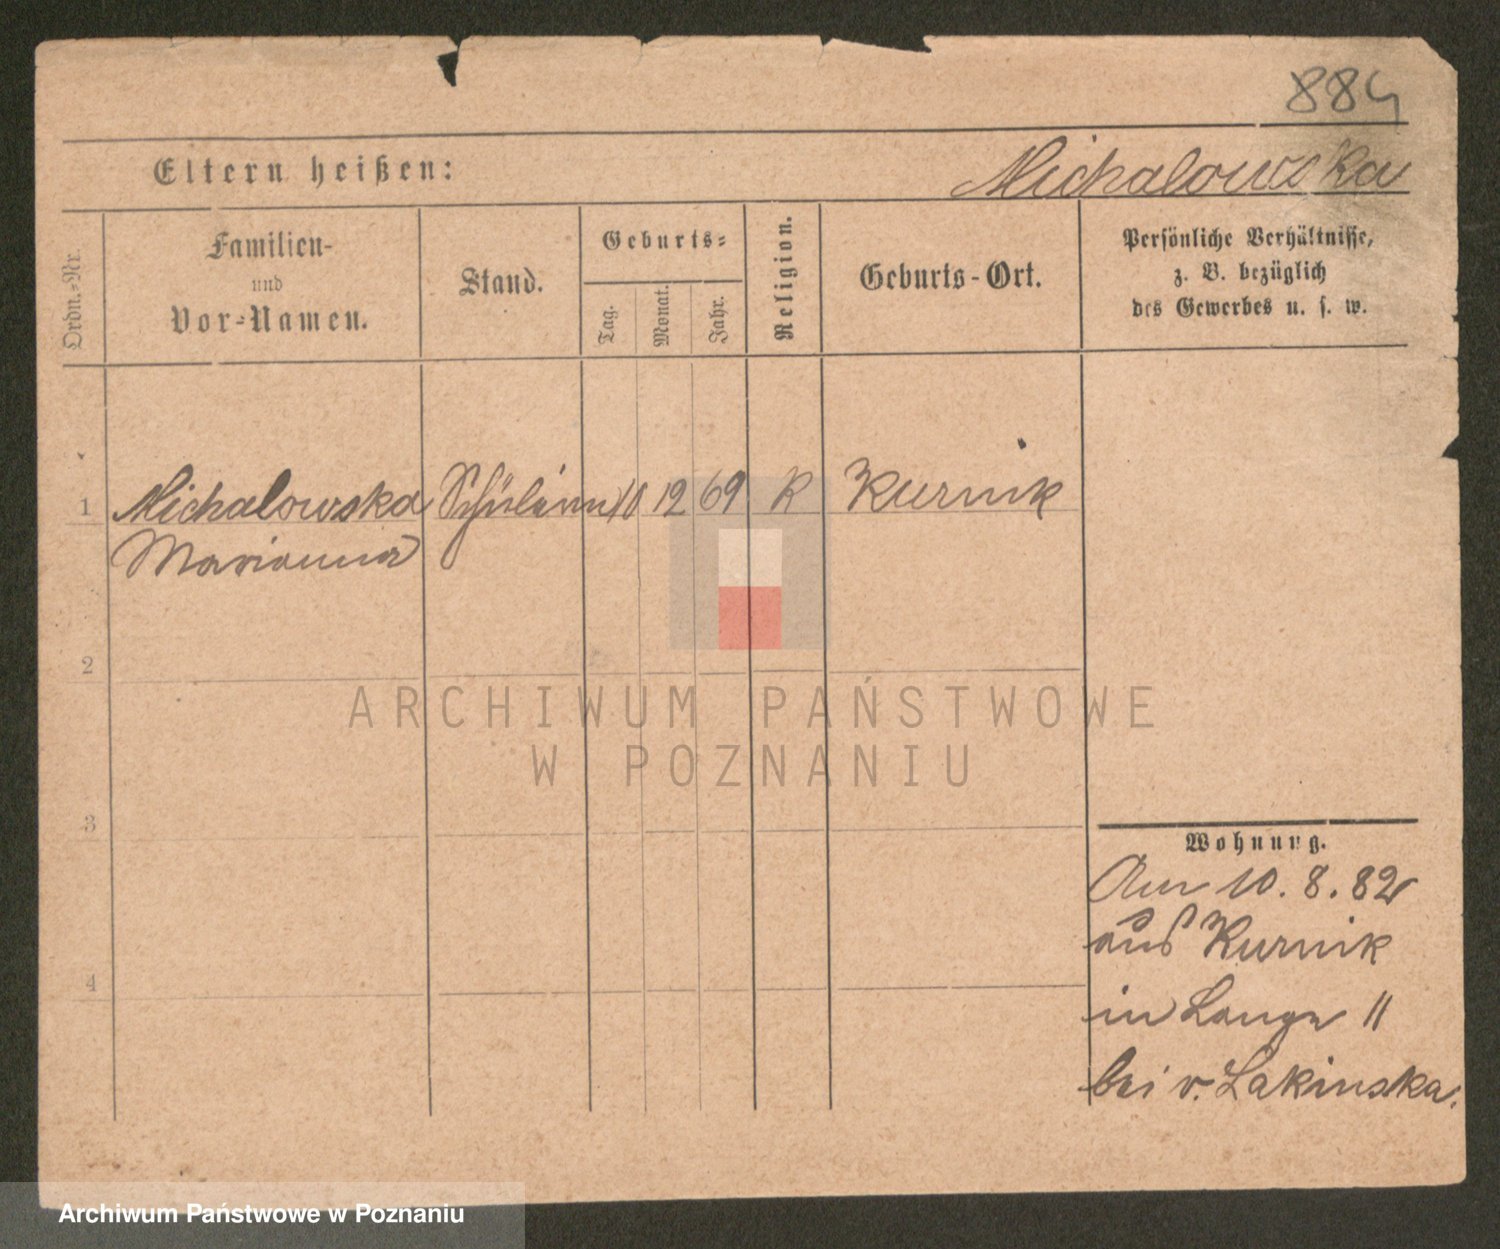 884
Eltern heißen:
Michalowska
Ordn.-Nr.
Familien-
und
Vor-Namen.
Stand.
Geburts-
Tag.
Monat.
Jahr.
Religion.
Geburts-Ort.
Persönliche Verhältnisse,
z. B. bezüglich
des Gewerbes u. s. w.
1 Michalowska Schülerin 10 12 69 K Kurnik
Marianna
2
3
4
Wohnung.
Am 10. 8. 82
aus Kurnik
in Lange 11
bei v. Lakinska.
ARCHIWUM PAŃSTWOWE
W POZNANIU
Archiwum Państwowe w Poznaniu